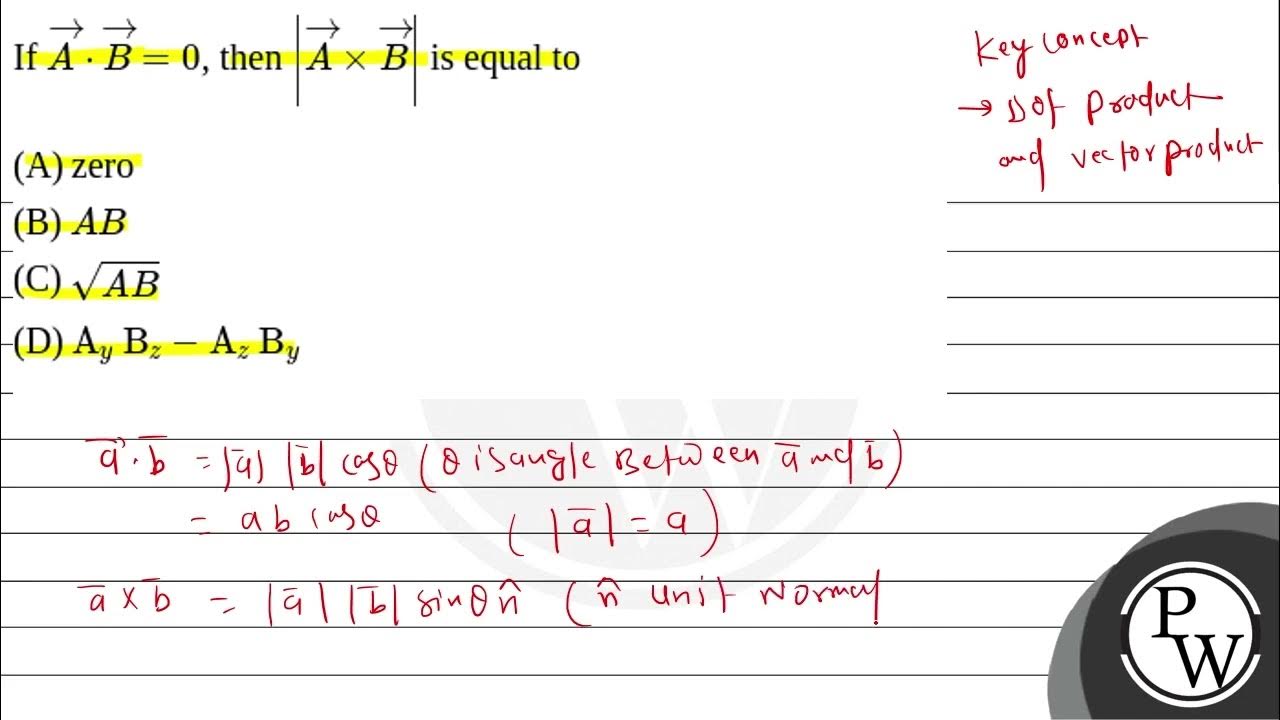 If $\overrightarrow{A} \cdot \overrightarrow{B} = 0$, then $\left|\overrightarrow{A} \times \overrightarrow{B}\right|$ is equal to
(A) zero
(B) $AB$
(C) $\sqrt{AB}$
(D) $A_y B_z - A_z B_y$
Key concept
→ Dot product
and vector product
$\overline{a} \cdot \overline{b} = |\overline{a}| |\overline{b}| \cos\theta$ (θ is angle Between $\overline{a}$ and $\overline{b}$)
= ab cosθ ( $|\overline{a}| = a$ )
$\overline{a} \times \overline{b} = |\overline{a}| |\overline{b}| \sin\theta \hat{n}$ ( $\hat{n}$ unit Normal
PW